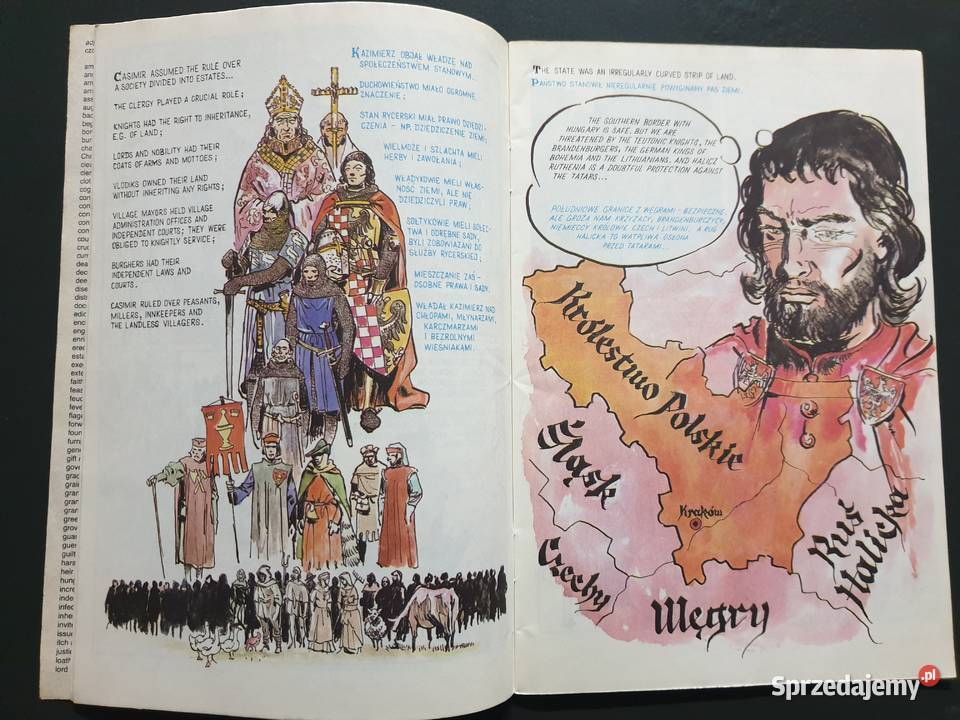 CASIMIR ASSUMED THE RULE OVER
A SOCIETY DIVIDED INTO ESTATES...
THE CLERGY PLAYED A CRUCIAL ROLE;
KNIGHTS HAD THE RIGHT TO INHERITANCE,
E.G. OF LAND;
LORDS AND NOBILITY HAD THEIR
COATS OF ARMS AND MOTTOES;
VLODIKS OWNED THEIR LAND
WITHOUT INHERITING ANY RIGHTS;
VILLAGE MAYORS HELD VILLAGE
ADMINISTRATION OFFICES AND
INDEPENDENT COURTS; THEY WERE
OBLIGED TO KNIGHTLY SERVICE;
BURGHERS HAD THEIR
INDEPENDENT LAWS AND
COURTS.
CASIMIR RULED OVER PEASANTS,
MILLERS, INNKEEPERS AND
THE LANDLESS VILLAGERS.
KAZIMIERZ OBJĄŁ WŁADZĘ NAD
SPOŁECZEŃSTWEM STANOWYM...
DUCHOWIEŃSTWO MIAŁO OGROMNE
ZNACZENIE;
STAN RYCERSKI MIAŁ PRAWO DZIEDZI-
CZENIA - NP. DZIEDZICZENIE ZIEMI;
WIELMOŻE I SZLACHTA MIELI
HERBY I ZAWOŁANIA;
WŁADYKOWIE MIELI WŁAS-
NOŚĆ ZIEMI, ALE NIE
DZIEDZICZYLI PRAW;
SOŁTYKOWIE MIELI SOŁEC-
TWA I ODRĘBNE SĄDY,
BYLI ZOBOWIĄZANI DO
SŁUŻBY RYCERSKIEJ;
MIESZCZANIE ZAŚ -
OSOBNE PRAWA I SĄDY.
WŁADAŁ KAZIMIERZ NAD
CHŁOPAMI, MŁYNARZAMI,
KARCZMARZAMI
I BEZROLNYMI
WIEŚNIAKAMI.
THE STATE WAS AN IRREGULARLY CURVED STRIP OF LAND.
PAŃSTWO STANOWIŁ NIEREGULARNIE POWYGINANY PAS ZIEMI.
THE SOUTHERN BORDER WITH
HUNGARY IS SAFE, BUT WE ARE
THREATENED BY THE TEUTONIC KNIGHTS, THE
BRANDENBURGERS, THE GERMAN KINGS OF
BOHEMIA AND THE LITHUANIANS, AND HALICZ
RUTHENIA IS A DOUBTFUL PROTECTION AGAINST
THE TATARS...
POŁUDNIOWE GRANICE Z WĘGRAMI - BEZPIECZNE,
ALE GROŻĄ NAM KRZYŻACY, BRANDENBURCZYCY,
NIEMIECCY KRÓLOWIE CZECH I LITWINI, A RUŚ
HALICKA TO WĄTPLIWA OSŁONA
PRZED TATARAMI...
Królestwo Polskie
Śląsk
Kraków
Czechy
Węgry
Ruś
Halicka
Sprzedajemy.pl